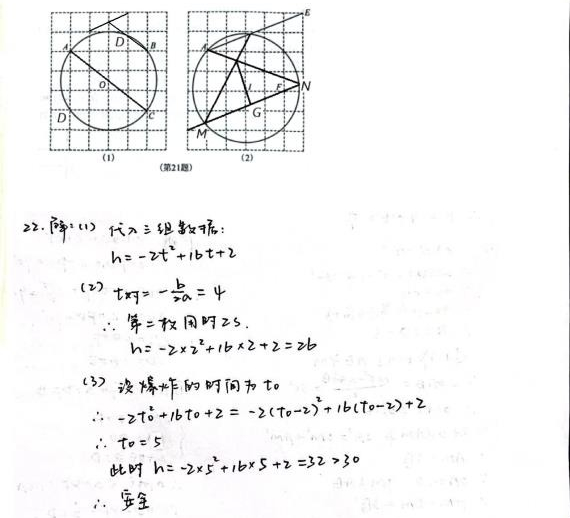 A D B
O
D C
(1)
E
A
I F N
G
M
(2)
(第21题)
22. 解:(1) 代入三组数据:
h=-2t²+16t+2
(2) t对=-b/2a=4
∴ 第二枚用时2s.
h=-2×2²+16×2+2=26
(3) 设爆炸的时间为t₀
∴ -2t₀²+16t₀+2=-2(t₀-2)²+16(t₀-2)+2
∴ t₀=5
此时 h=-2×5²+16×5+2=32>30
∴ 安全